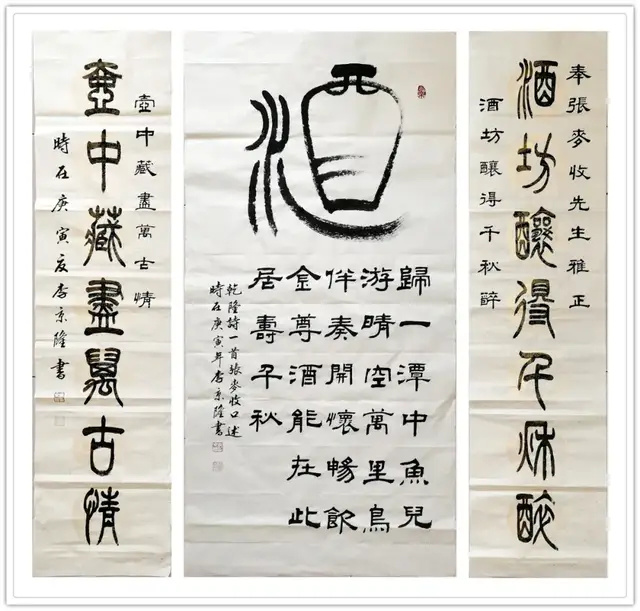 奉張麥收先生雅正
酒坊釀得千秋醉
酒坊釀得千秋醉
酒
歸一潭中魚兒
游晴空萬里鳥
伴奏開懷暢飲
金尊酒能在此
居壽千秋
乾隆詩一首張麥收口述
時在庚寅年李京隆書
壺中藏盡萬古情
壺中藏盡萬古情
時在庚寅夏李京隆書